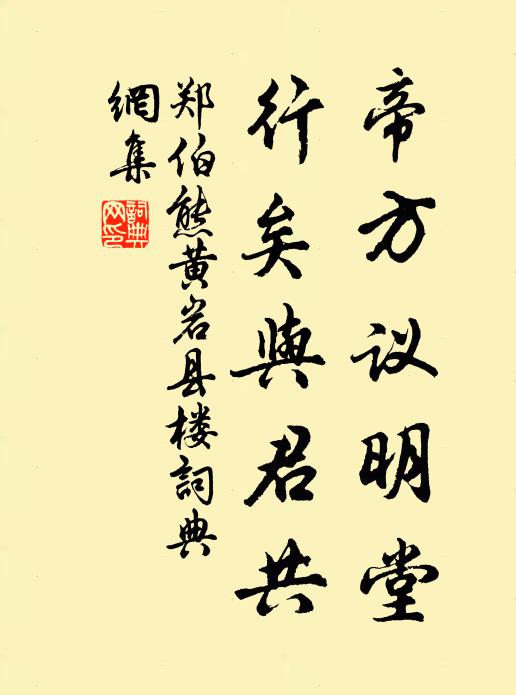 帝方议明堂
行矣與君共
郑伯熊黄岩县楼詞典
網集
詞典网印